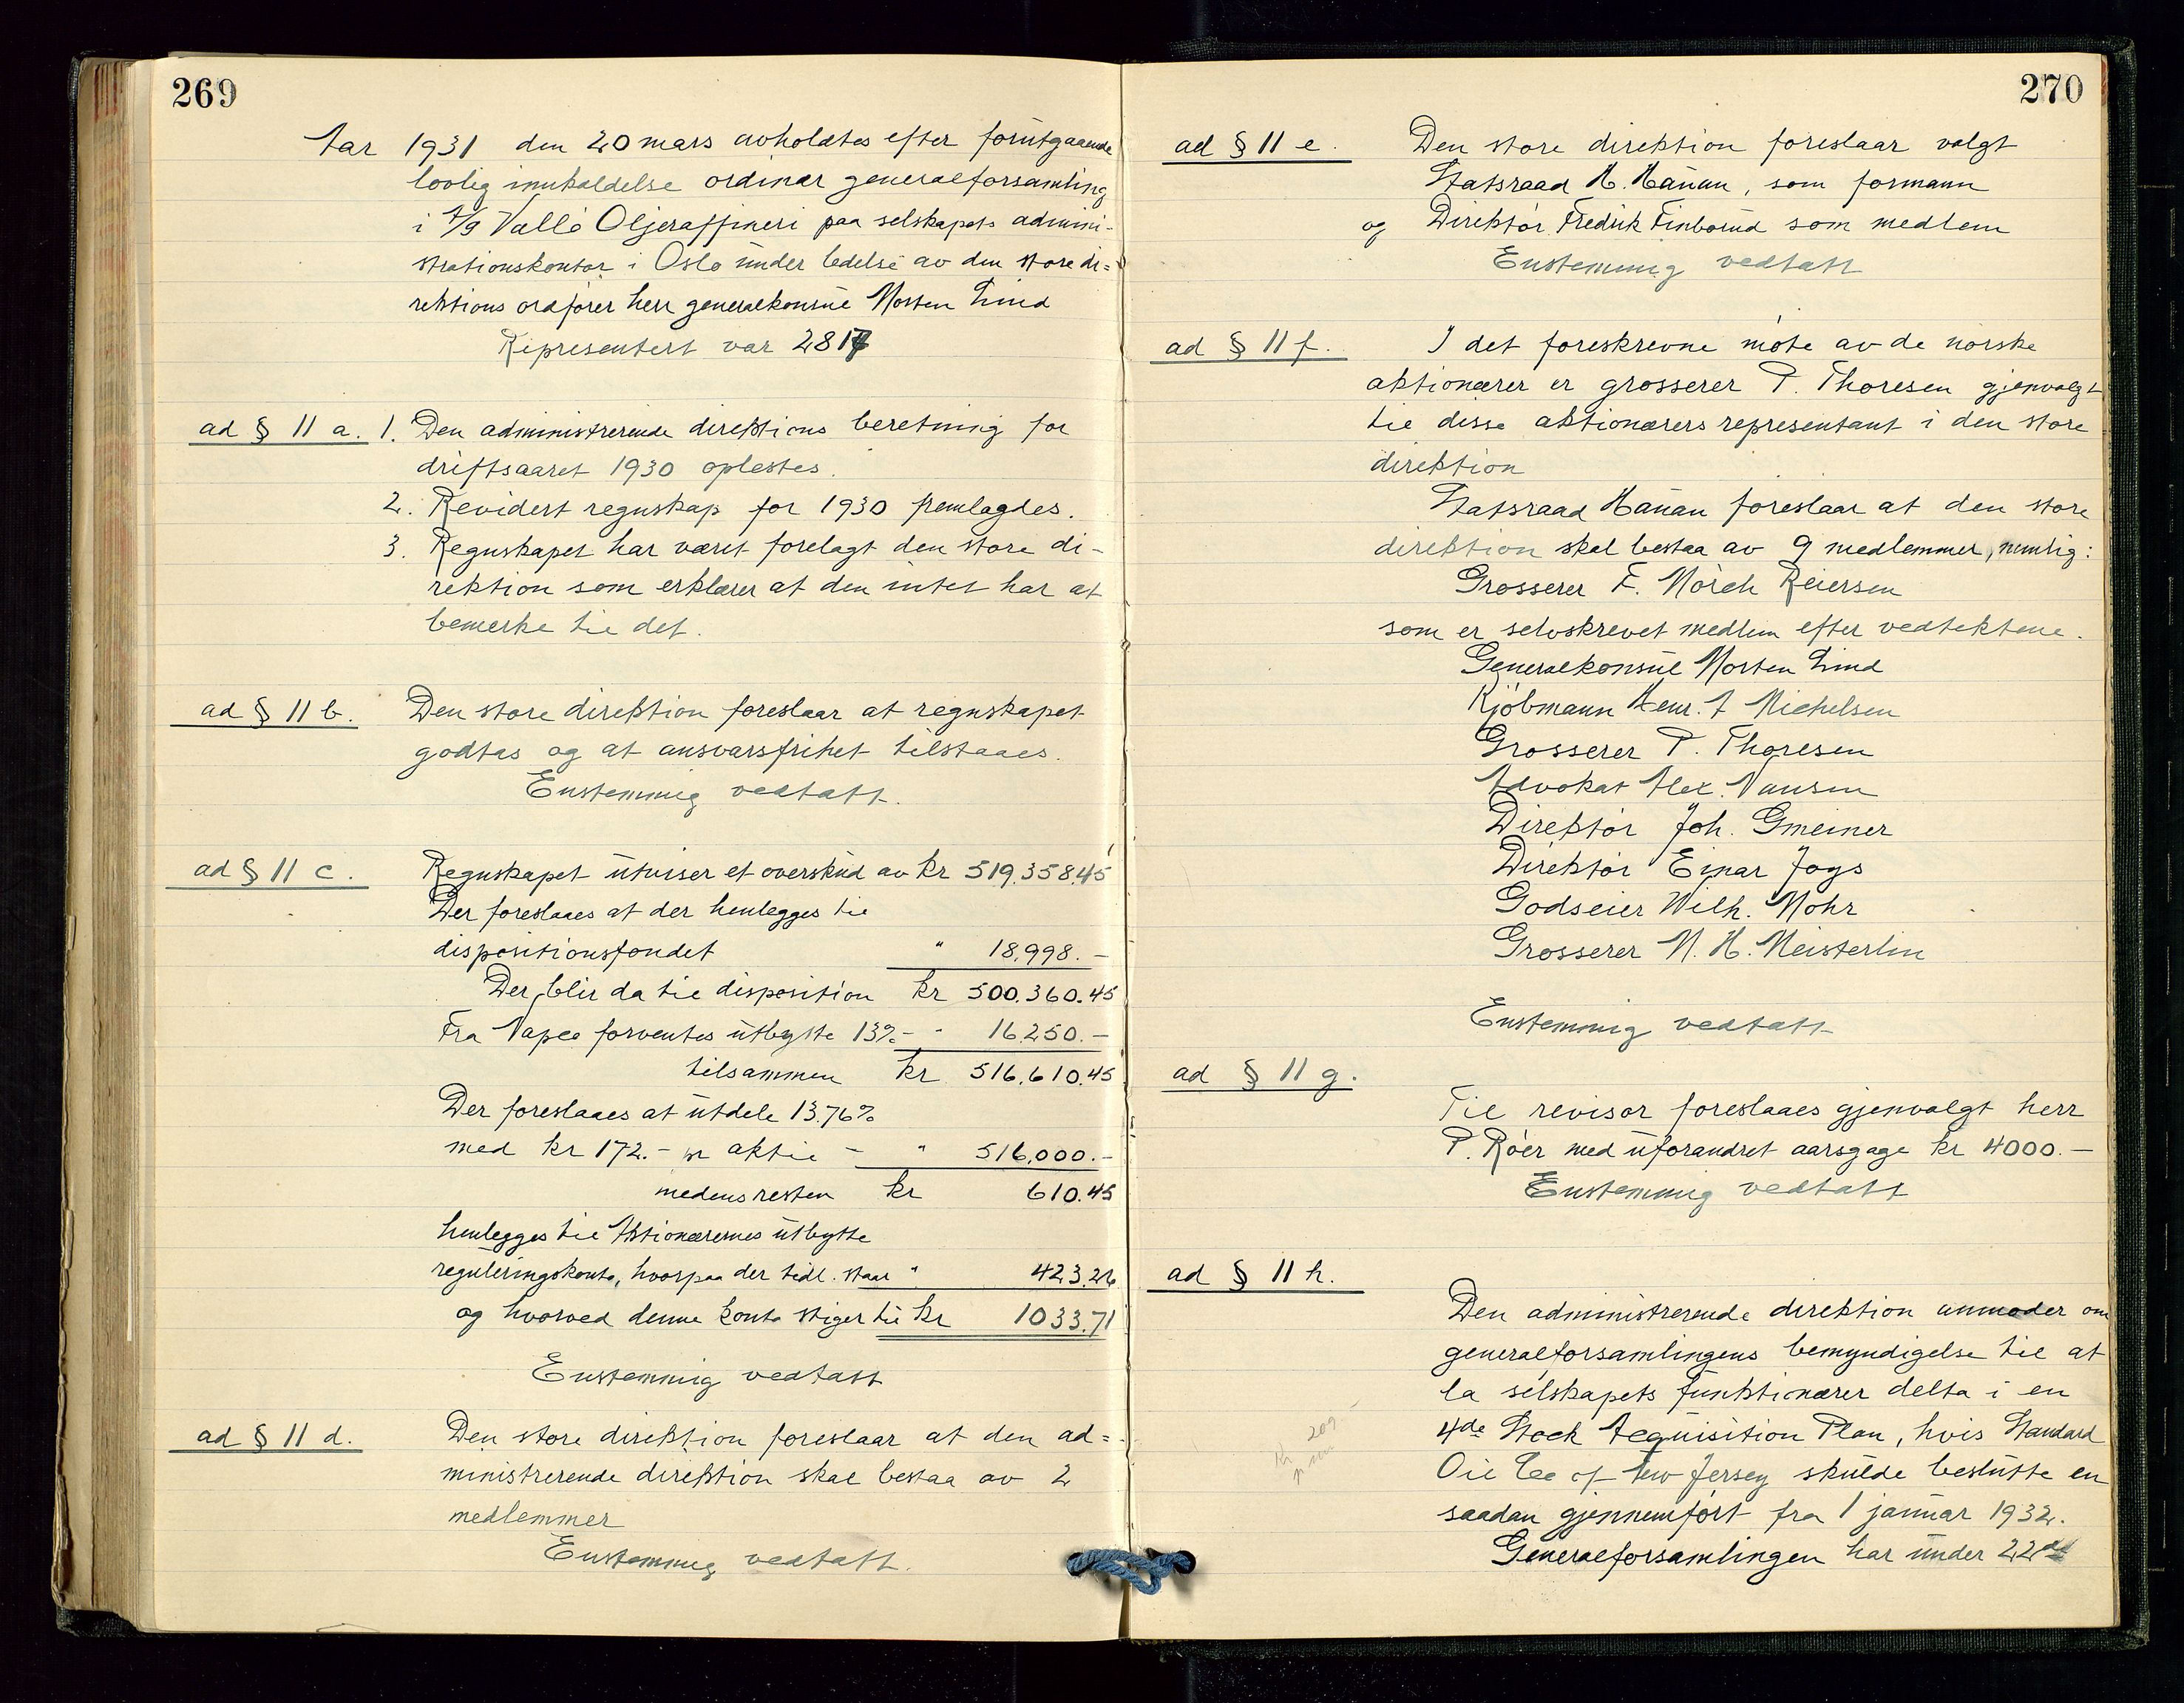 269
Aar 1931 den 20 mars avholdtes efter forutgaaende
lovlig innkaldelse ordinær generalforsamling
i A/S Vallö Oljeraffineri paa selskapets admini-
strationskontor i Oslo under ledelse av den store di=
rektions ordförer herr generalkonsul Morten Lind
Representert var 2817
ad § 11 a. 1. Den administrerende direktions beretning for
driftsaaret 1930 oplestes.
2. Revidert regnskap for 1930 fremlagdes.
3. Regnskapet har været forelagt den store di-
rektion som erklærer at den intet har at
bemerke til det.
ad § 11 b. Den store direktion foreslaar at regnskapet
godtas og at ansvarsfrihet tilstaaes.
Enstemmig vedtatt.
ad § 11 c. Regnskapet utviser et overskud av kr 519.358.45
Der foreslaaes at der henlegges til
dispositionsfondet " 18.998.-
Der blir da til disposition kr 500.360.45
Fra Vapco forventes utbytte 13% - " 16.250.-
tilsammen kr 516.610.45
Der foreslaaes at utdele 13.76%
med kr 172.- pr aktie - " 516.000.-
medens resten kr 610.45
henlegges til Aktionærernes utbytte
reguleringskonto, hvorpaa der tidl. staar " 423.26
og hvorved denne konto stiger til kr 1033.71
Enstemmig vedtatt
ad § 11 d. Den store direktion foreslaar at den ad=
ministrerende direktion skal bestaa av 2
medlemmer
Enstemmig vedtatt.
270
ad § 11 e. Den store direktion foreslaar valgt
Statsraad H. Hauan, som formann
og Direktör Fredrik Finborud som medlem
Enstemmig vedtatt
ad § 11 f. I det foreskrevne möte av de norske
aktionærer er grosserer P. Thoresen gjenvalgt
til disse aktionærers representant i den store
direktion
Statsraad Hauan foreslaar at den store
direktion skal bestaa av 9 medlemmer, nemlig:
Grosserer F. Mörch Reiersen
som er selvskrevet medlem efter vedtektene.
Generalkonsul Morten Lind
Kjöbmann Henr. A Michelsen
Grosserer P. Thoresen
Advokat Alex. Nansen
Direktör Joh. Gmeiner
Direktör Einar Jogs
Godseier Wilh. Mohr
Grosserer N. H. Meisterlin
Enstemmig vedtatt
ad § 11 g.
Til revisor foreslaaes gjenvalgt herr
P. Röer med uforandret aarsgage kr 4000.-
Enstemmig vedtatt
ad § 11 h.
Den administrerende direktion anmoder om
generalforsamlingens bemyndigelse til at
la selskapets funktionærer delta i en
4de Stock Acquisition Plan, hvis Standard
Oil Co of New Jersey skulde beslutte en
saadan gjennemfört fra 1 januar 1932.
209.-
Generalforsamlingen har under 22